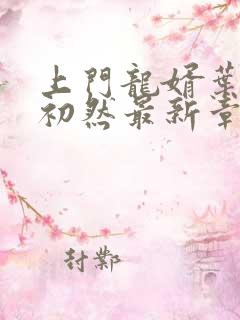 上門龍婿葉
初然最新章
封鄴